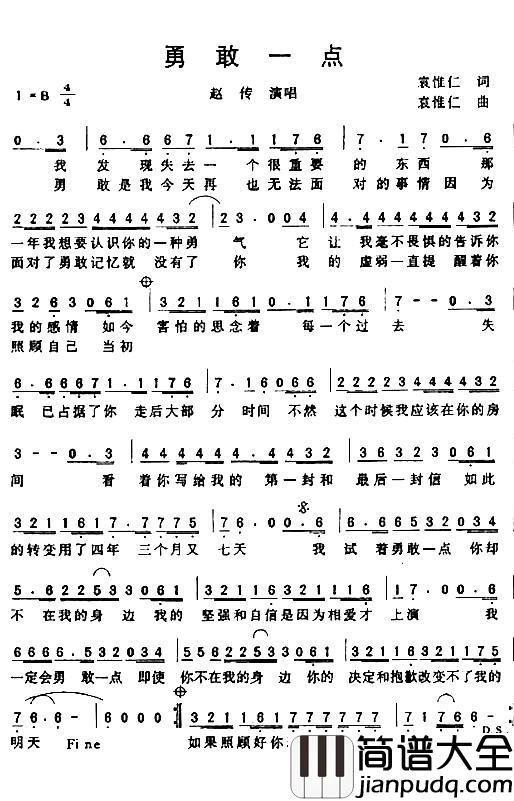 勇敢一点
1=B 4/4 赵传 演唱 袁惟仁 词
袁惟仁 曲
0.3 6.667 1.103 4.4321 7.170.6
我 发 现失去一 个很重要 的 东西 那
勇 敢是我今天再 也无法面 对的事情因为
2222234444444432 23.004 4.444444432
一年我想要认识你的一种勇 气 它 让 我毫不畏惧的告诉你
面对了勇敢记忆就 没有了 你 我 的 虚弱一直提 醒着你
32630 61 321161 0.1176 7--0.3
我的感情 如今 害怕的思念着 每一个过 去 失
照顾自己 当初
6.666671.1176 7.16066 2222344434432434
眠 已占据了你 走后大部 分 时间 不然 这个时候我应该在你的房
3--0.3 4.44444.4432 3632306 1
间 看 着你写给我的 第一封和 最后一封信 如此
321161107.7775 76.00.6 6.6665 32034
的转变用了四年 三个月又 七天 我 试 着勇敢一点 你却
5.622533061 321161321116 17.00.6
不 在我的身 边 我的 坚强和自信是因为相爱才 上演 我
6666.5323034 5.62253306 1 32116132111761
一定会勇 敢一点 即使 你不在我的身 边 你的 决定和抱歉改变不了我的
76.6- 6000
明天 Fine 如果照顾好你
D.S.
简谱大全
jianpudq.com